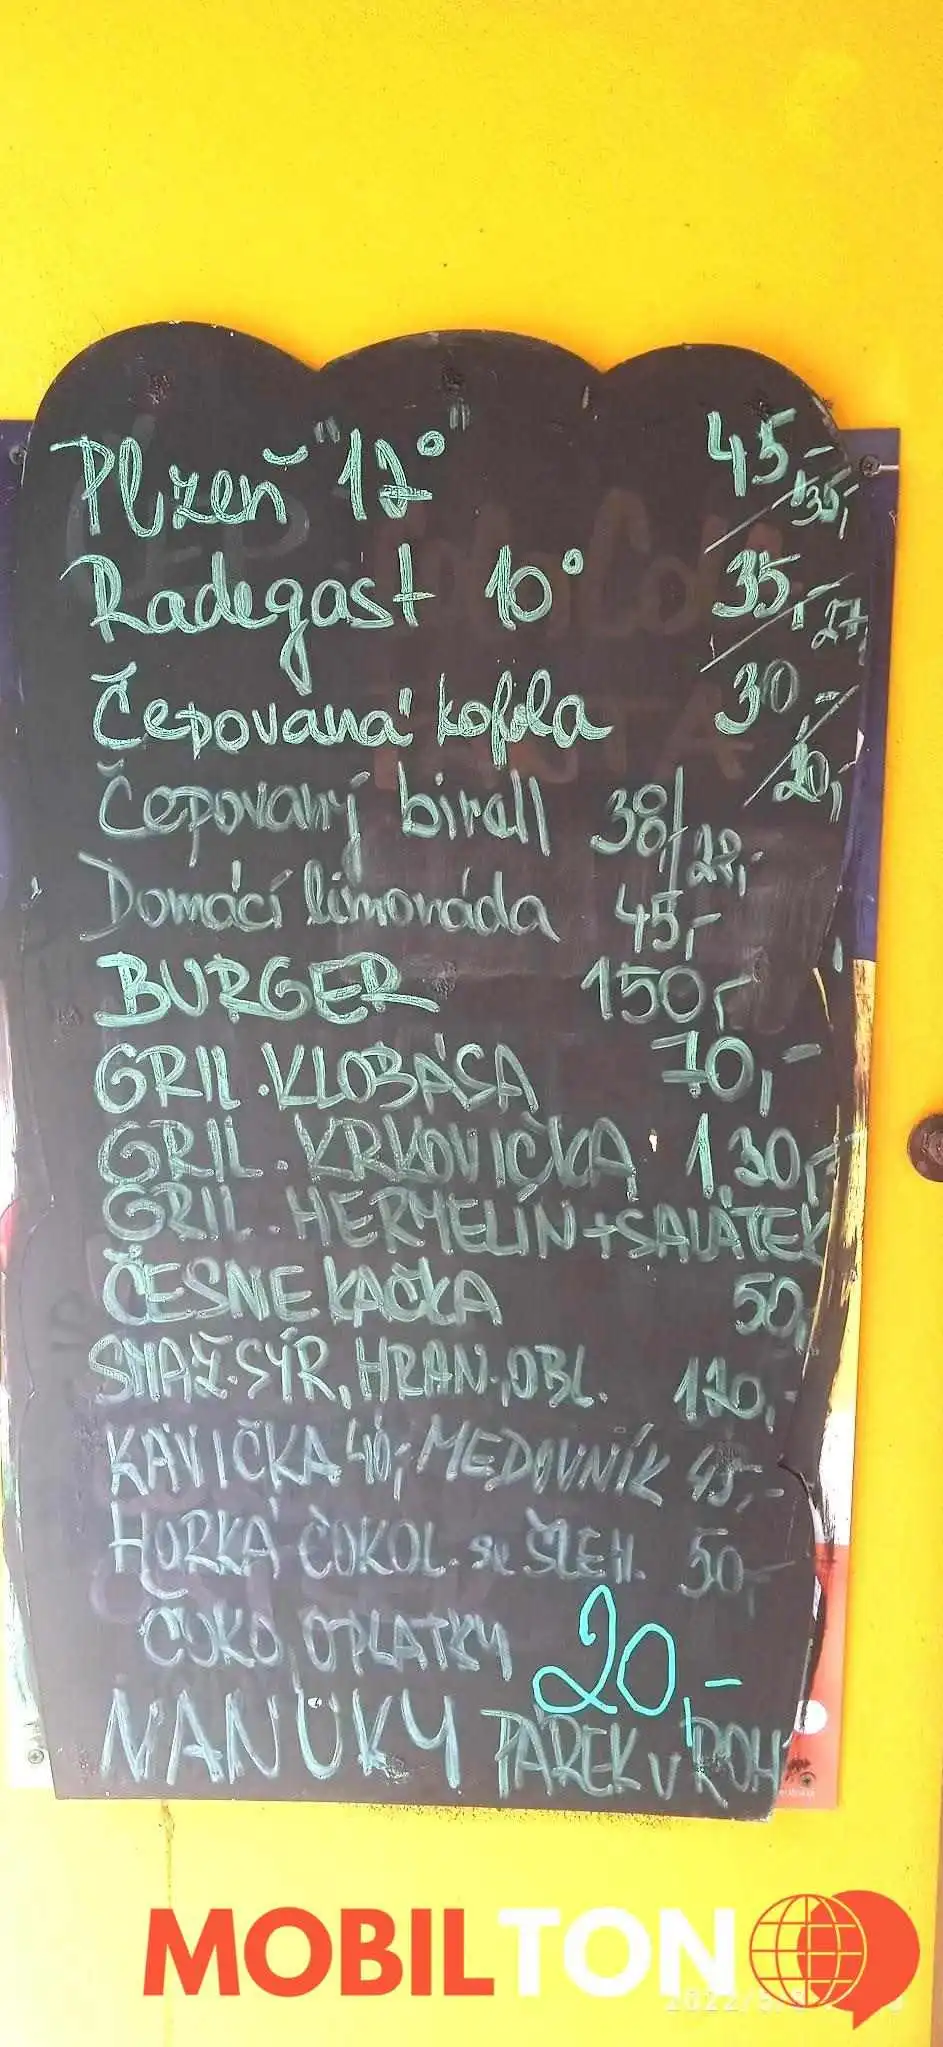 Plzeň "12°" 45,-/35,-
Radegast 10° 35,-/27,
Čepovaná kofola 30,-/20,
Čepovaný birell 38/28,-
Domácí limonáda 45,-
BURGER 150,-
GRIL. KLOBÁSA 70,-
GRIL. KRKOVIČKA 130,-
GRIL. HERMELÍN+SALÁTEK
ČESNEKAČKA 50,
SMAŽ.SÝR, HRAN., OBL. 120,-
KÁVIČKA 40,- MEDOVNÍK 45,-
HORKÁ ČOKOL. se ŠLEH. 50,-
ČOKO OPLATKY 20,-
NANUKY PÁREK v ROH
MOBILTON